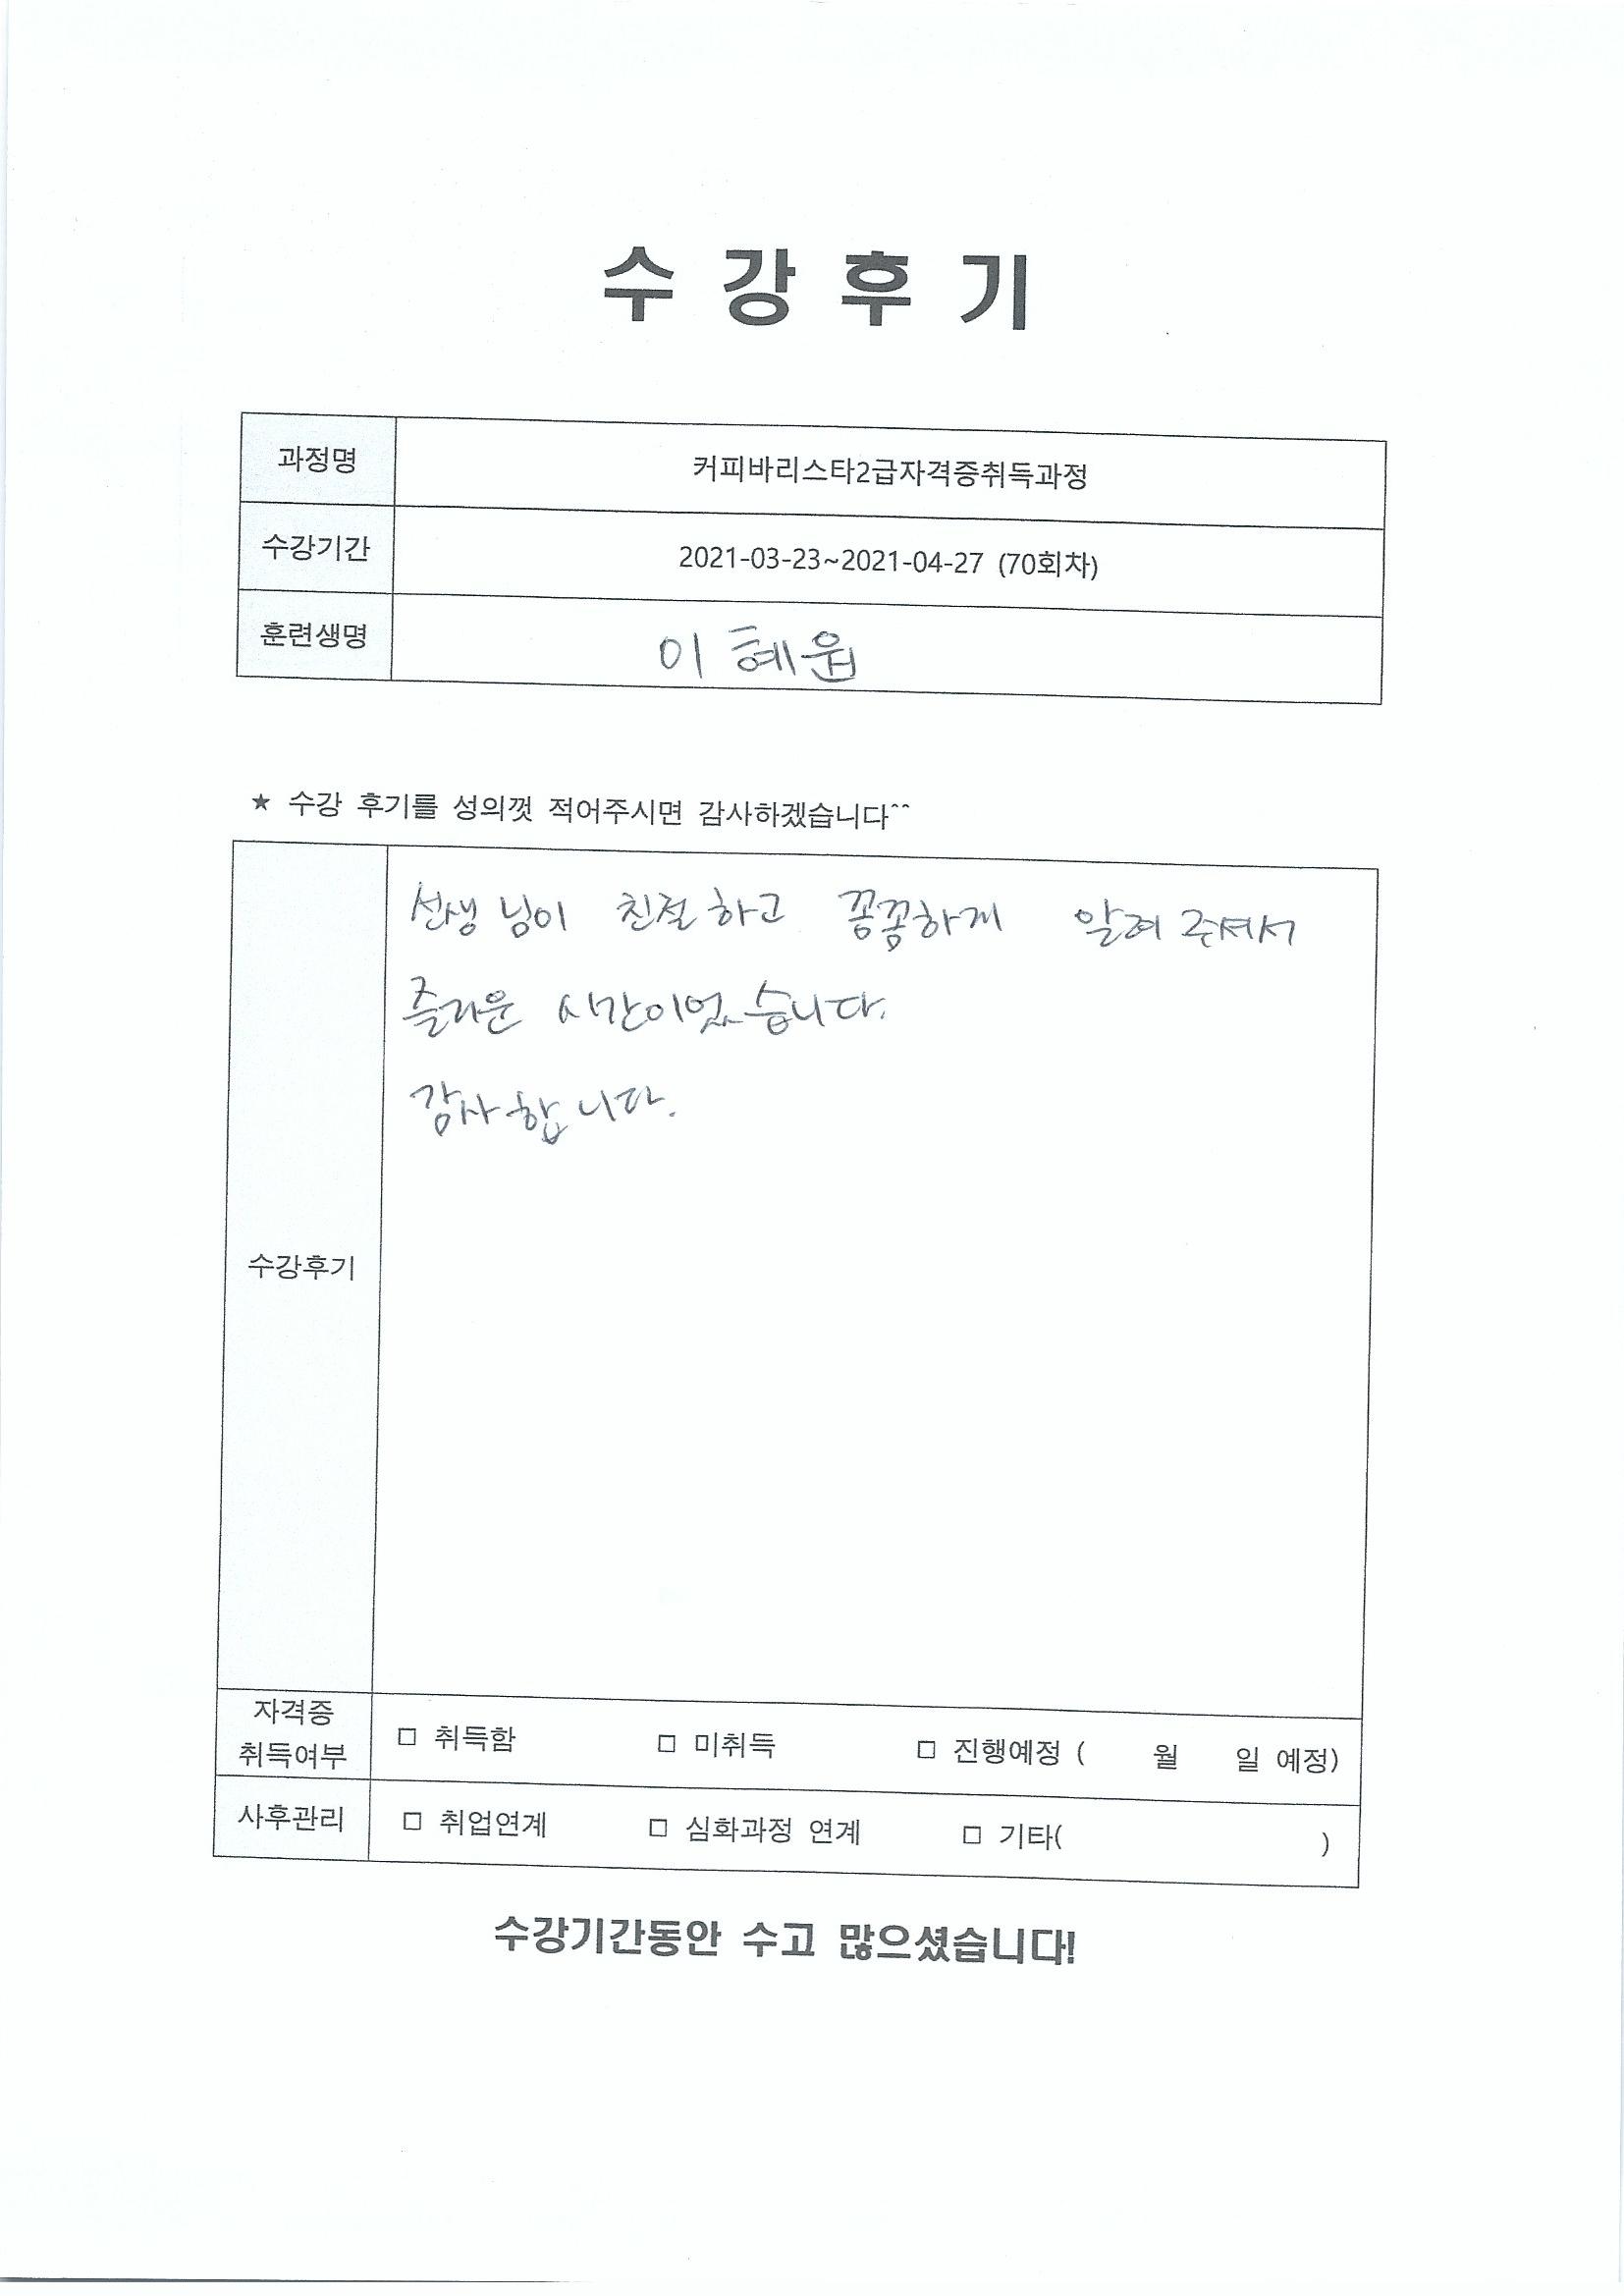 수강후기
과정명 커피바리스타2급자격증취득과정
수강기간 2021-03-23~2021-04-27 (70회차)
훈련생명 이혜원
★ 수강 후기를 성의껏 적어주시면 감사하겠습니다^^
선생님이 친절하고 꼼꼼하게 알려주셔서
즐거운 시간이었습니다.
감사합니다.
수강후기
자격증
취득여부 □ 취득함 □ 미취득 □ 진행예정 ( 월 일 예정)
사후관리 □ 취업연계 □ 심화과정 연계 □ 기타( )
수강기간동안 수고 많으셨습니다!